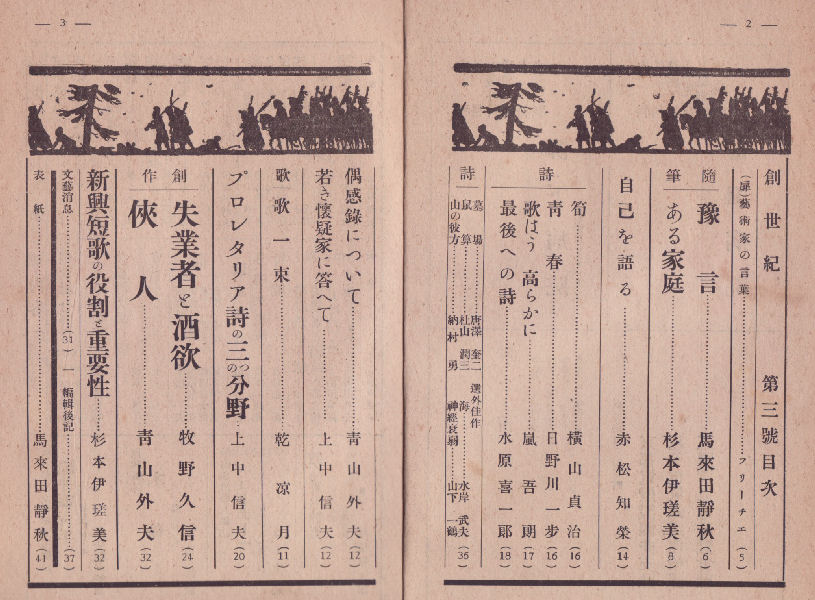 — 2 —
創世紀 第三號目次
(扉)藝術家の言葉……フリーチェ(5)
隨筆
豫言……馬來田靜秋(6)
ある家庭……杉本伊瑳美(8)
自己を語る……赤松知榮(14)
詩
筍……横山貞治(16)
靑春……日野川一歩(16)
歌はう高らかに……嵐吾朗(17)
最後への詩……水原喜一郎(18)
詩
墓場……唐澤奎二
鼠算……杜山潤三
山の彼方……納村勇
選外佳作
海……水岸武夫
神經衰弱……山下一鶴(36)
— 3 —
偶感錄について……靑山外夫(12)
若き懷疑家に答へて……上中信夫(12)
歌
歌一束……乾凉月(11)
プロレタリア詩の三つの分野……上中信夫(20)
創作
失業者と酒欲……牧野久信(24)
俠人……靑山外夫(32)
新興短歌の役割と重要性……杉本伊瑳美(32)
文藝消息……(31)— 編輯後記……(37)
表紙……馬來田靜秋(41)